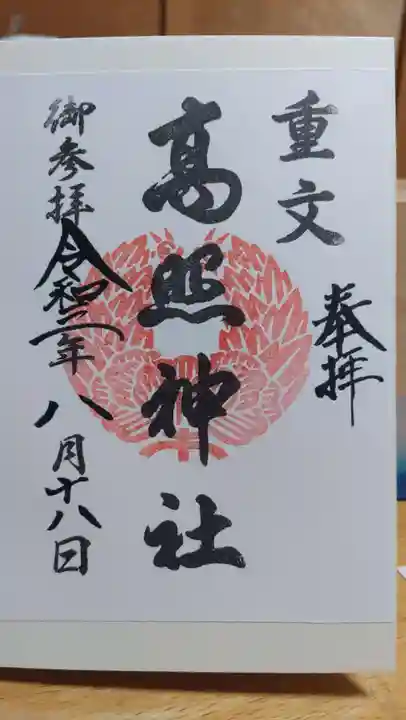 重文
奉拝
高照神社
御参拝令和二年八月十八日